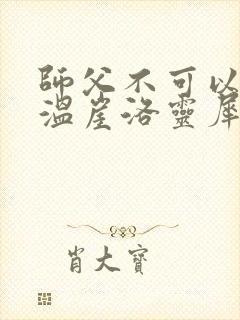 師父不可以
溫崖洛靈犀
肖大寶